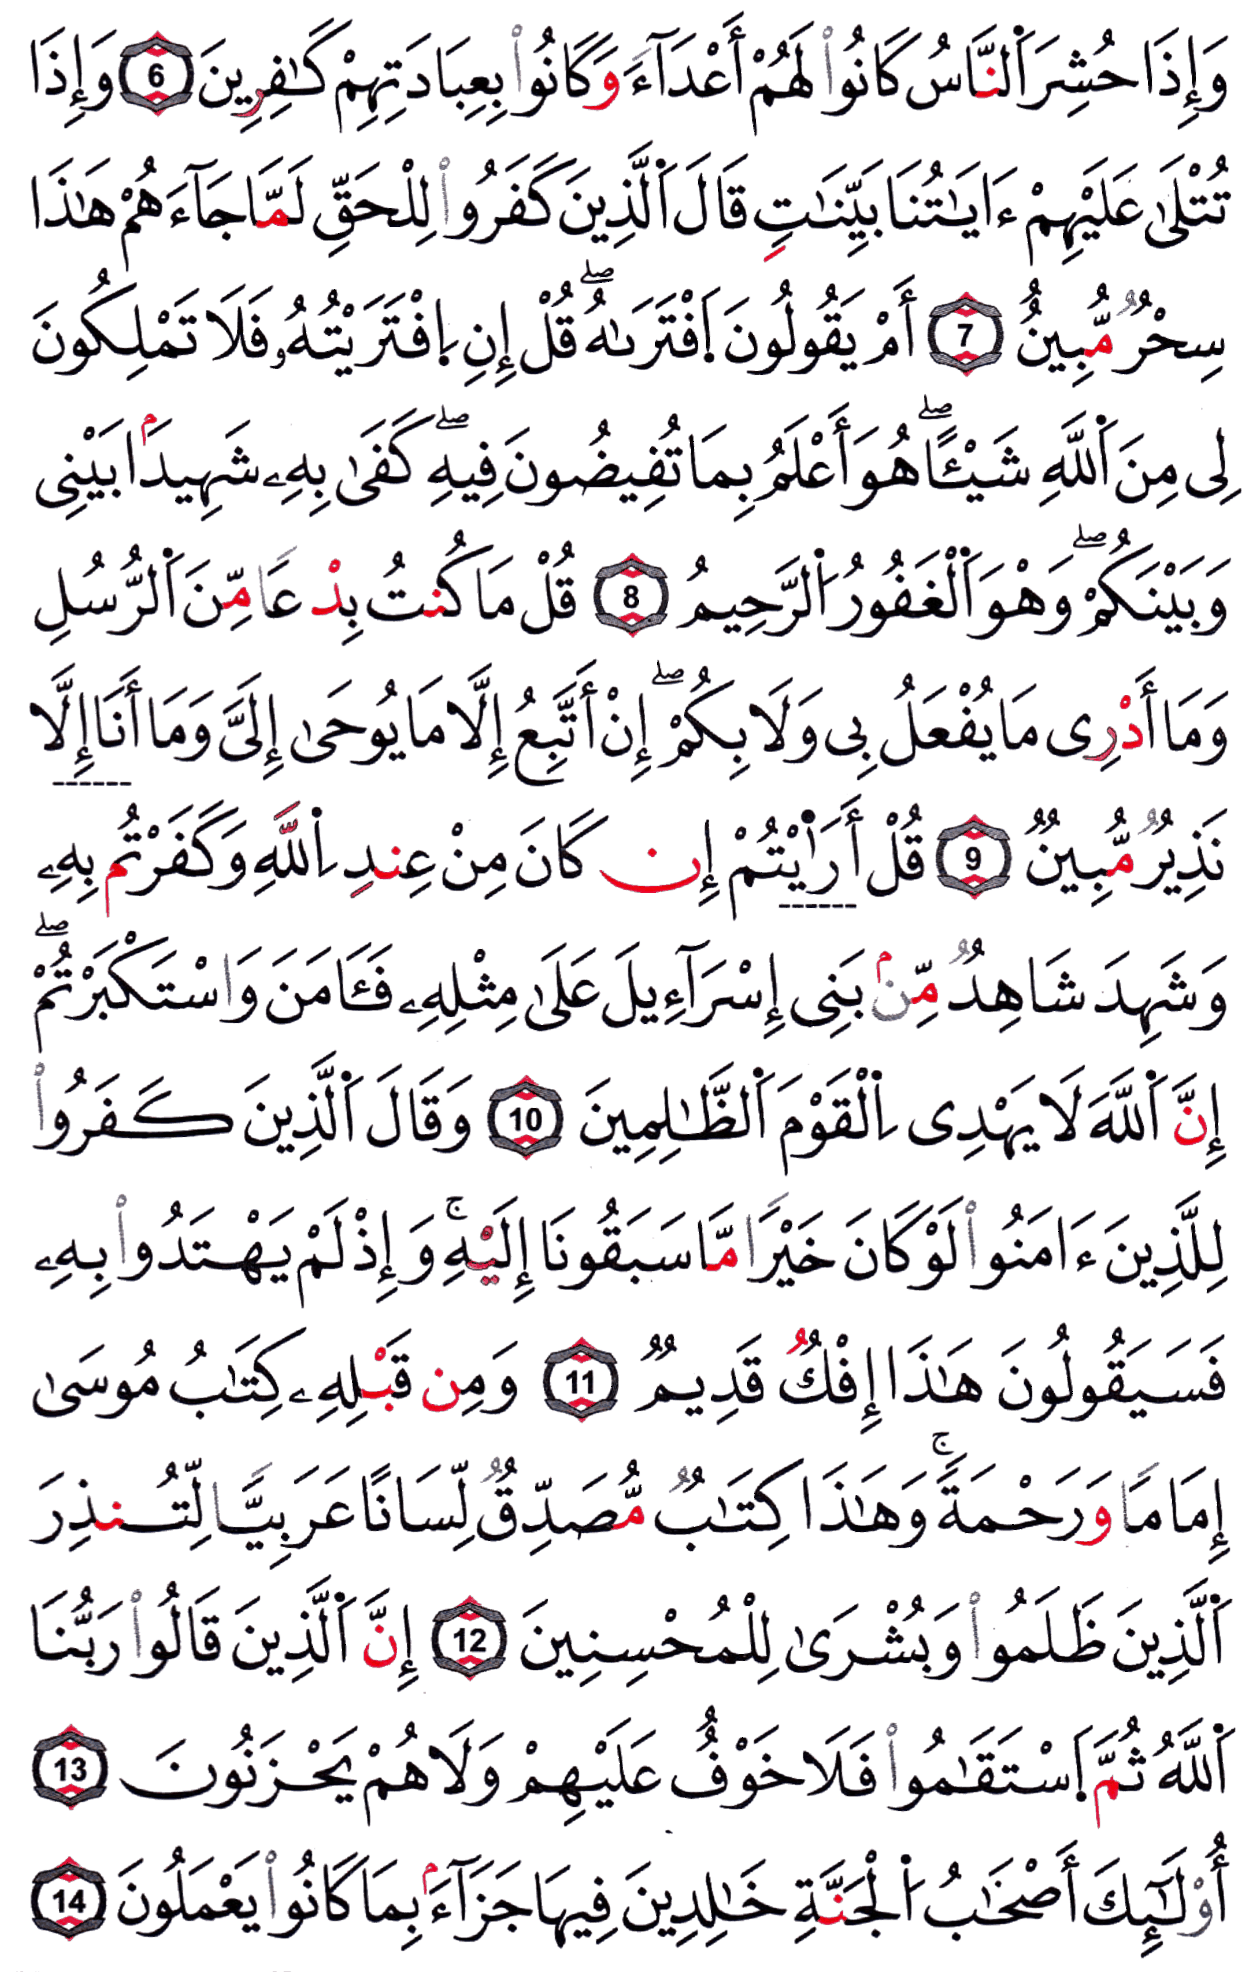 وَإِذَا حُشِرَ اَ۬لنَّاسُ كَانُواْ لَهُمْ أَعْدَآءٗ وَكَانُواْ بِعِبَادَتِهِمْ كَٰفِرِينَ 6 وَإِذَا
تُتْلَىٰ عَلَيْهِمْ ءَايَٰتُنَا بَيِّنَٰتٖ قَالَ اَ۬لَّذِينَ كَفَرُواْ لِلْحَقِّ لَمَّا جَآءَهُمْ هَٰذَا
سِحْرٞ مُّبِينٌ 7 أَمْ يَقُولُونَ اَ۪فْتَرَىٰهُۖ قُلْ إِنِ اِ۪فْتَرَيْتُهُۥ فَلَا تَمْلِكُونَ
لِى مِنَ اَ۬للَّهِ شَيْـًٔاۖ هُوَ أَعْلَمُ بِمَا تُفِيضُونَ فِيهِۖ كَفَىٰ بِهِۦ شَهِيدَۢا بَيْنِى
وَبَيْنَكُمْۖ وَهْوَ اَ۬لْغَفُورُ اُ۬لرَّحِيمُ 8 قُلْ مَا كُنتُ بِدْعٗا مِّنَ اَ۬لرُّسُلِ
وَمَا أَدْرِى مَا يُفْعَلُ بِى وَلَا بِكُمْۖ إِنْ أَتَّبِعُ إِلَّا مَا يُوحَىٰ إِلَىَّ وَمَا أَنَا إِلَّا
نَذِيرٞ مُّبِينٌ 9 قُلْ أَرَٰيْتُمْ إِن كَانَ مِنْ عِندِ اِ۬للَّهِ وَكَفَرْتُم بِهِۦ
وَشَهِدَ شَاهِدٞ مِّنۢ بَنِى إِسْرَآءِيلَ عَلَىٰ مِثْلِهِۦ فَـَٔامَنَ وَاسْتَكْبَرْتُمْۖ
إِنَّ اَ۬للَّهَ لَا يَهْدِى اِ۬لْقَوْمَ اَ۬لظَّٰلِمِينَ 10 وَقَالَ اَ۬لَّذِينَ كَفَرُواْ
لِلَّذِينَ ءَامَنُواْ لَوْ كَانَ خَيْرٗا مَّا سَبَقُونَا إِلَيْهِۚ وَإِذْ لَمْ يَهْتَدُواْ بِهِۦ
فَسَيَقُولُونَ هَٰذَا إِفْكٞ قَدِيمٌ 11 وَمِن قَبْلِهِۦ كِتَٰبُ مُوسَىٰ
إِمَامٗا وَرَحْمَةٗۚ وَهَٰذَا كِتَٰبٞ مُّصَدِّقٞ لِّسَانًا عَرَبِيّٗا لِّتُنذِرَ
اَ۬لَّذِينَ ظَلَمُواْ وَبُشْرَىٰ لِلْمُحْسِنِينَ 12 إِنَّ اَ۬لَّذِينَ قَالُواْ رَبُّنَا
اَ۬للَّهُ ثُمَّ اَ۪سْتَقَٰمُواْ فَلَا خَوْفٌ عَلَيْهِمْ وَلَا هُمْ يَحْزَنُونَ 13
أُوْلَٰٓئِكَ أَصْحَٰبُ اُ۬لْجَنَّةِ خَٰلِدِينَ فِيهَا جَزَآءَۢ بِمَا كَانُواْ يَعْمَلُونَ 14